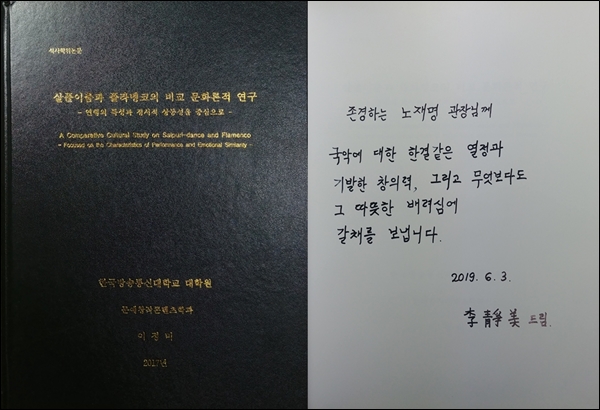 석사학위논문
살풀이춤과 플라멩코의 비교 문화론적 연구
- 연행의 특성과 정서적 상통성을 중심으로 -
A Comparative Cultural Study on Salpuri-dance and Flamenco
- Focused on the Characteristics of Performance and Emotional Similarity -
한국방송통신대학교 대학원
문예창작콘텐츠학과
이정미
2017년
존경하는 노재명 관장님께
국악에 대한 한결같은 열정과
기발한 창의력, 그리고 무엇보다도
그 따뜻한 배려심에
갈채를 보냅니다.
2019. 6. 3.
李 靜 美 드림.